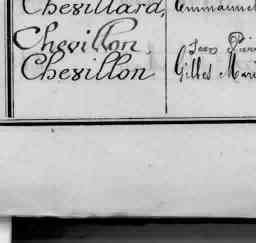 Chevillard, Emmanuel
Chevillon Jean Pierre
Chevillon Gilles Mari